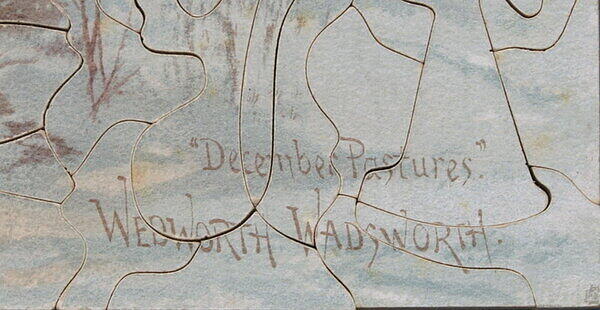 "December Pastures."
WEDWORTH WADSWORTH.